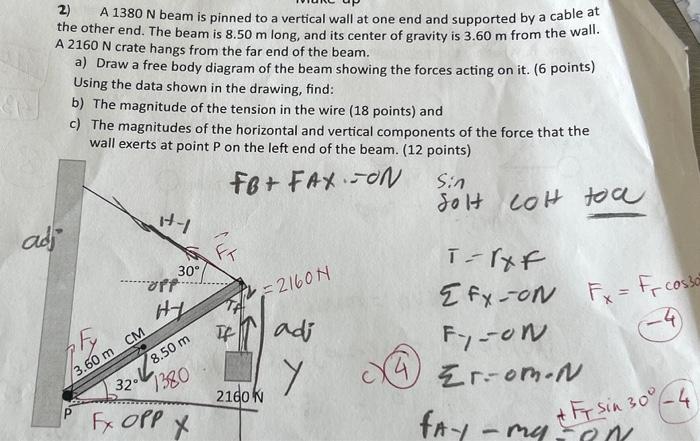 2) A 1380 N beam is pinned to a vertical wall at one end and supported by a cable at
the other end. The beam is 8.50 m long, and its center of gravity is 3.60 m from the wall.
A 2160 N crate hangs from the far end of the beam.
a) Draw a free body diagram of the beam showing the forces acting on it. (6 points)
Using the data shown in the drawing, find:
b) The magnitude of the tension in the wire (18 points) and
c) The magnitudes of the horizontal and vertical components of the force that the
wall exerts at point P on the left end of the beam. (12 points)
FB + FAX = ON
Sin
SoH COH toa
adj
H-y
FT
30°
OPP
= 2160 N
T = r x F
H-y
Σ Fx = ON
Fx = FT cos 30
-4
Fy
CM
adj
Fy = ON
3.60 m
8.50 m
y
c) 4
32°
1380
2160 N
+ FT sin 30°
-4
P
Fx OPP x
FA-y - mg = ON